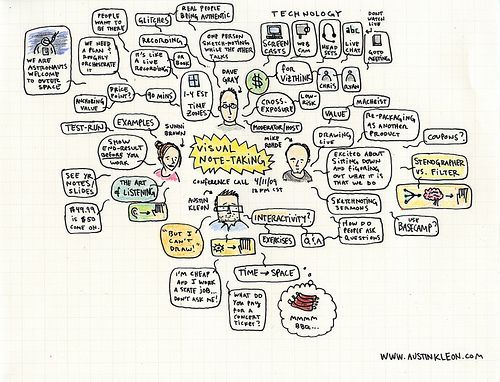 TECHNOLOGY
REAL PEOPLE
BEING AUTHENTIC
PEOPLE
WANT TO
BE THERE
GLITCHES
DON'T WATCH
LIVE
SCREEN
CASTS
WEB
CAM
HEAD
SETS
abc
LIVE
CHAT
GOTO
MEETING
ONE PERSON
SKETCH-NOTING
WHILE THE OTHER
TALKS
RECORDING
WE NEED
A PLAN!
ROUGHLY
ORCHESTRATE IT
IT'S LIKE
A LIVE
RECORDING
OR
BOOK
WE ARE
ASTRONAUTS
WELCOME
TO OUTER
SPACE
DAVE
GRAY
$
FOR
VIZTHINK
CHRIS
RYAN
PRICE
POINT?
90 MINS
1-4 EST
TIME
ZONES
ANCHORING
VALUE
CROSS-
EXPOSURE
LOW-
RISK
MACHEIST
VALUE
RE-PACKAGING
AS ANOTHER
PRODUCT
TEST-RUN
EXAMPLES
SUNNI
BROWN
MODERATOR/HOST
MIKE
ROHDE
DRAWING
LIVE
COUPONS?
SHOW
END-RESULT
BEFORE YOU
WORK
VISUAL
NOTE-TAKING
EXCITED ABOUT
SITTING DOWN
AND FIGURING
OUT WHAT IT IS
THAT WE DO
STENOGRAPHER
VS. FILTER
SEE YR
NOTES/
SLIDES
THE ART
OF LISTENING
CONFERENCE CALL 9/11/09
12 PM CST
SKETCHNOTING
SERMONS
$49.99
IS $50
COME ON.
AUSTIN
KLEON
"BUT I
CAN'T
DRAW!"
INTERACTIVITY?
HOW DO
PEOPLE ASK
QUESTIONS
USE
BASECAMP?
EXERCISES
Q & A
I'M CHEAP
AND I WORK
A STATE JOB...
DON'T ASK ME!
TIME → SPACE
WHAT DO
YOU PAY
FOR A
CONCERT
TICKET?
MMMM
BBQ...
WWW.AUSTINKLEON.COM